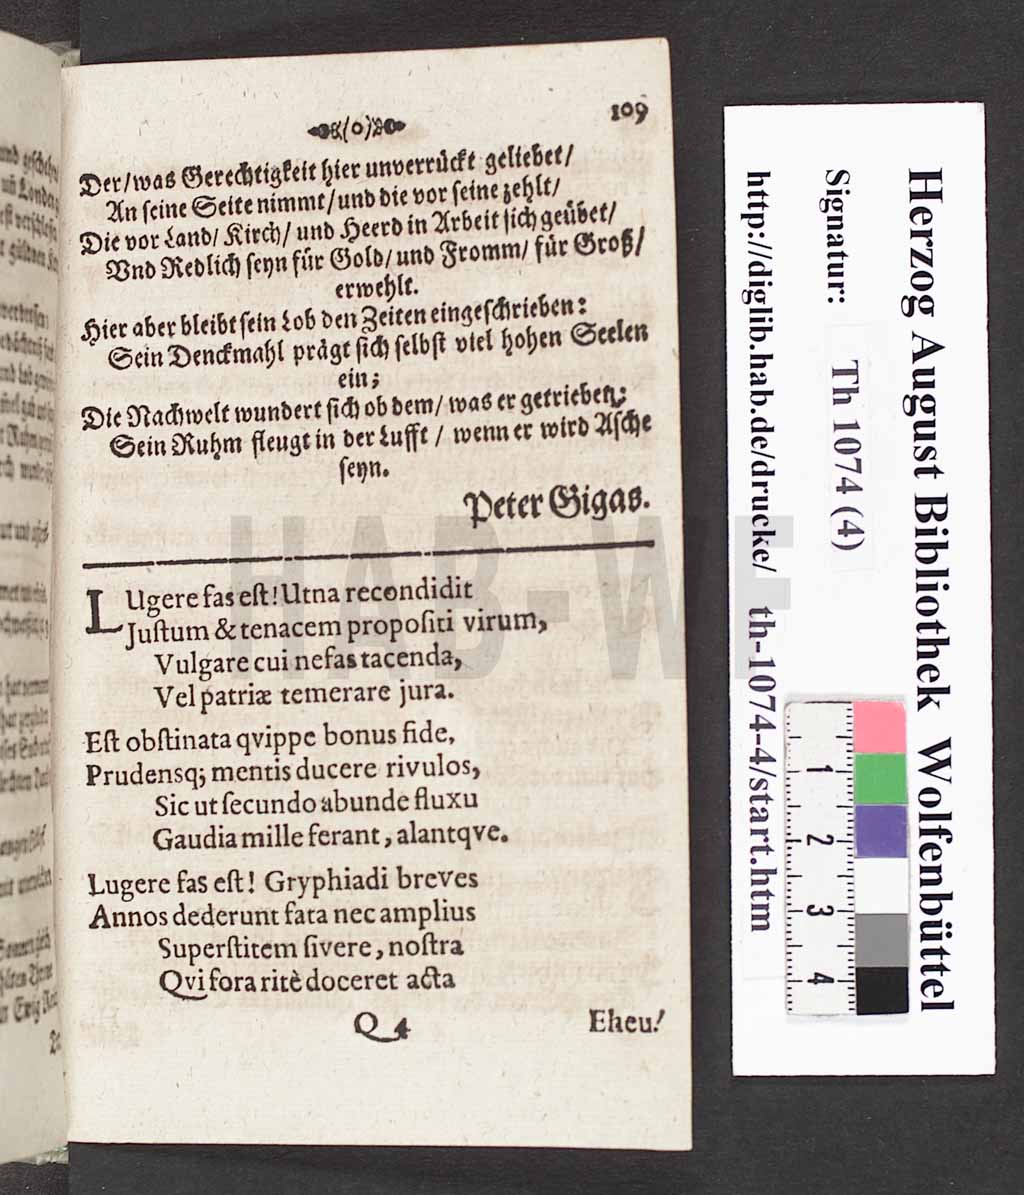 109
(o)
Der/was Gerechtigkeit hier unverrückt geliebet/
An seine Seite nimmt/und die vor seine zehlt/
Die vor Land/ Kirch/ und Heerd in Arbeit sich geübet/
Vnd Redlich seyn für Gold/ und Fromm/ für Groß/
erwehlt.
Hier aber bleibt sein Lob den Zeiten eingeschrieben:
Sein Denckmahl prägt sich selbst viel hohen Seelen
ein;
Die Nachwelt wundert sich ob dem/ was er getrieben;
Sein Ruhm fleugt in der Lufft / wenn er wird Asche
seyn.
Peter Gigas.
LUgere fas est! Utna recondidit
Justum & tenacem propositi virum,
Vulgare cui nefas tacenda,
Vel patriæ temerare jura.
Est obstinata qvippe bonus fide,
Prudensq; mentis ducere rivulos,
Sic ut secundo abunde fluxu
Gaudia mille ferant, alantqve.
Lugere fas est! Gryphiadi breves
Annos dederunt fata nec amplius
Superstitem sivere, nostra
Qvi fora ritè doceret acta
Q 4
Eheu!
HAB-WF
Herzog August Bibliothek Wolfenbüttel
Signatur: Th 1074 (4)
http://diglib.hab.de/drucke/ th-1074-4/start.htm
1
2
3
4